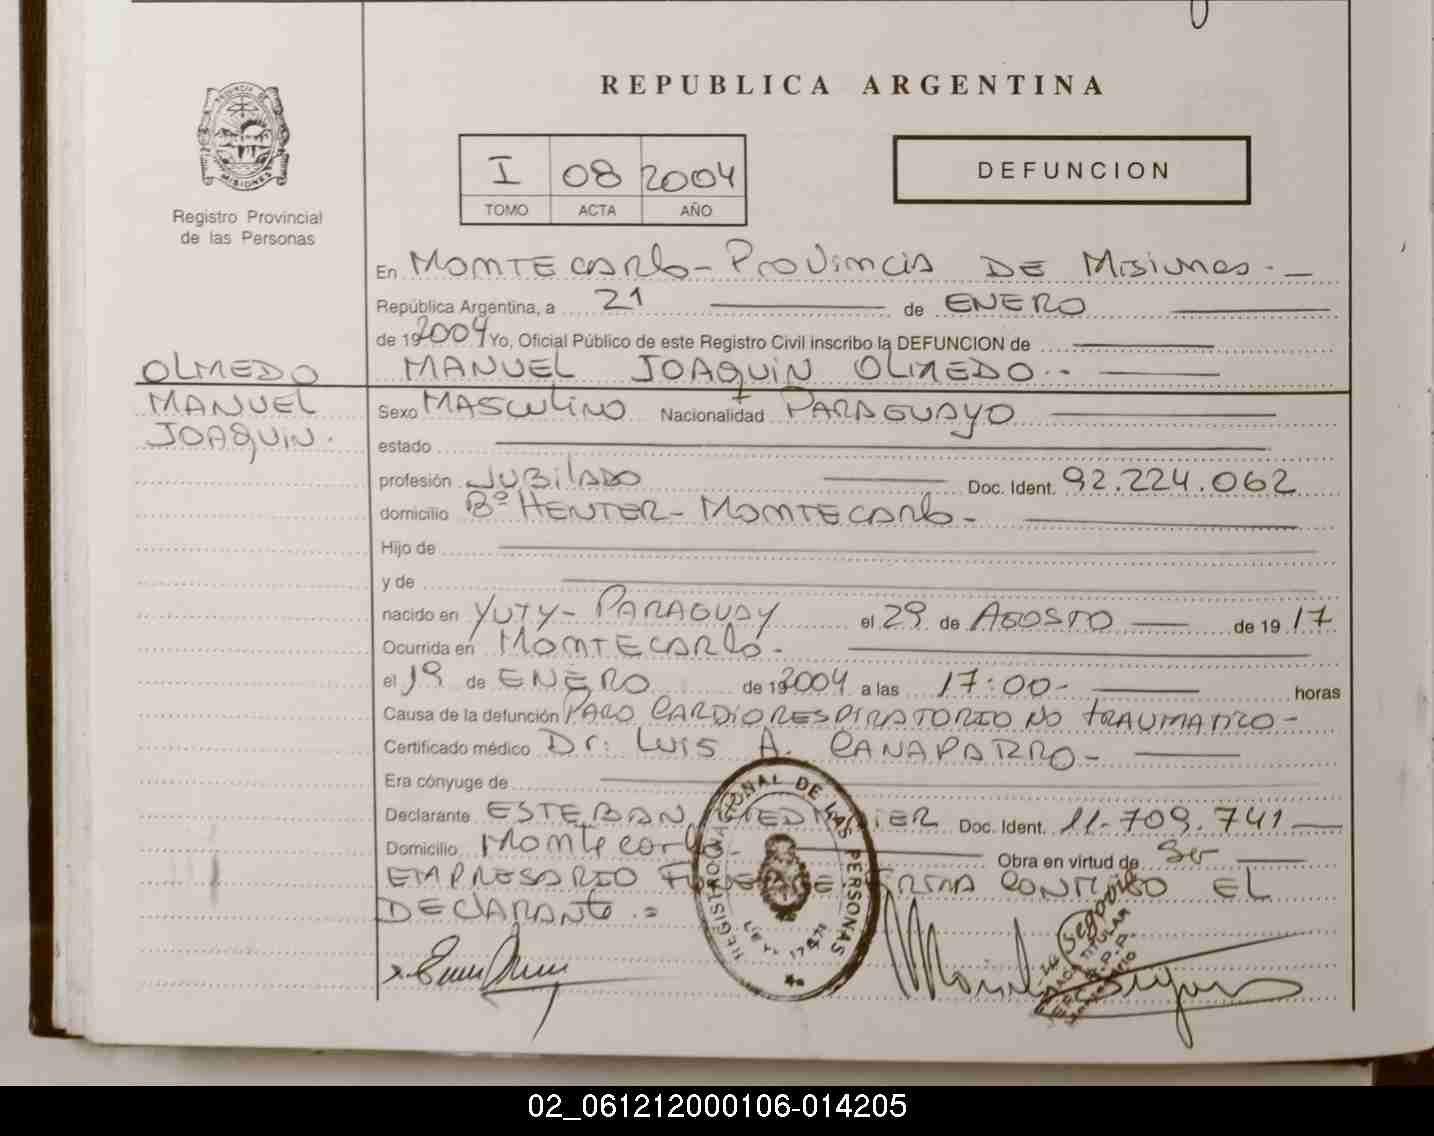 REPUBLICA ARGENTINA
PROVINCIA DE
MISIONES
Registro Provincial
de las Personas
I 08 2004
TOMO ACTA AÑO
DEFUNCION
En MONTECARlo - PROVINCIA DE MISIONES. -
República Argentina, a 21 de ENERO
de 192004 Yo, Oficial Público de este Registro Civil inscribo la DEFUNCION de
MANUEL JOAQUIN OLMEDO. -
OLMEDO
MANUEL
JOAQUIN.
Sexo MASCULINO Nacionalidad PARAGUAYO
estado
profesión JUBILADO Doc. Ident. 92.224.062
domicilio Bº HENTER - MONTECARLO -
Hijo de
y de
nacido en YUTY - PARAGUAY el 29 de AGOSTO de 19 17
Ocurrida en MONTECARLO -
el 19 de ENERO de 192004 a las 17:00 - horas
Causa de la defunción PARO CARDIORESPIRATORIO NO TRAUMATICO -
Certificado médico Dr: LUIS A. CANAPARRO -
Era cónyuge de
Declarante ESTEBAN Doc. Ident. 11.709.741
Domicilio Montecarlo - Obra en virtud de Ser
EMPRESARIO FIRMA CONMIGO EL
DECLARANTE. =
REGISTRO NACIONAL DE LAS PERSONAS
LEY 17671
Segovia
02_061212000106-014205